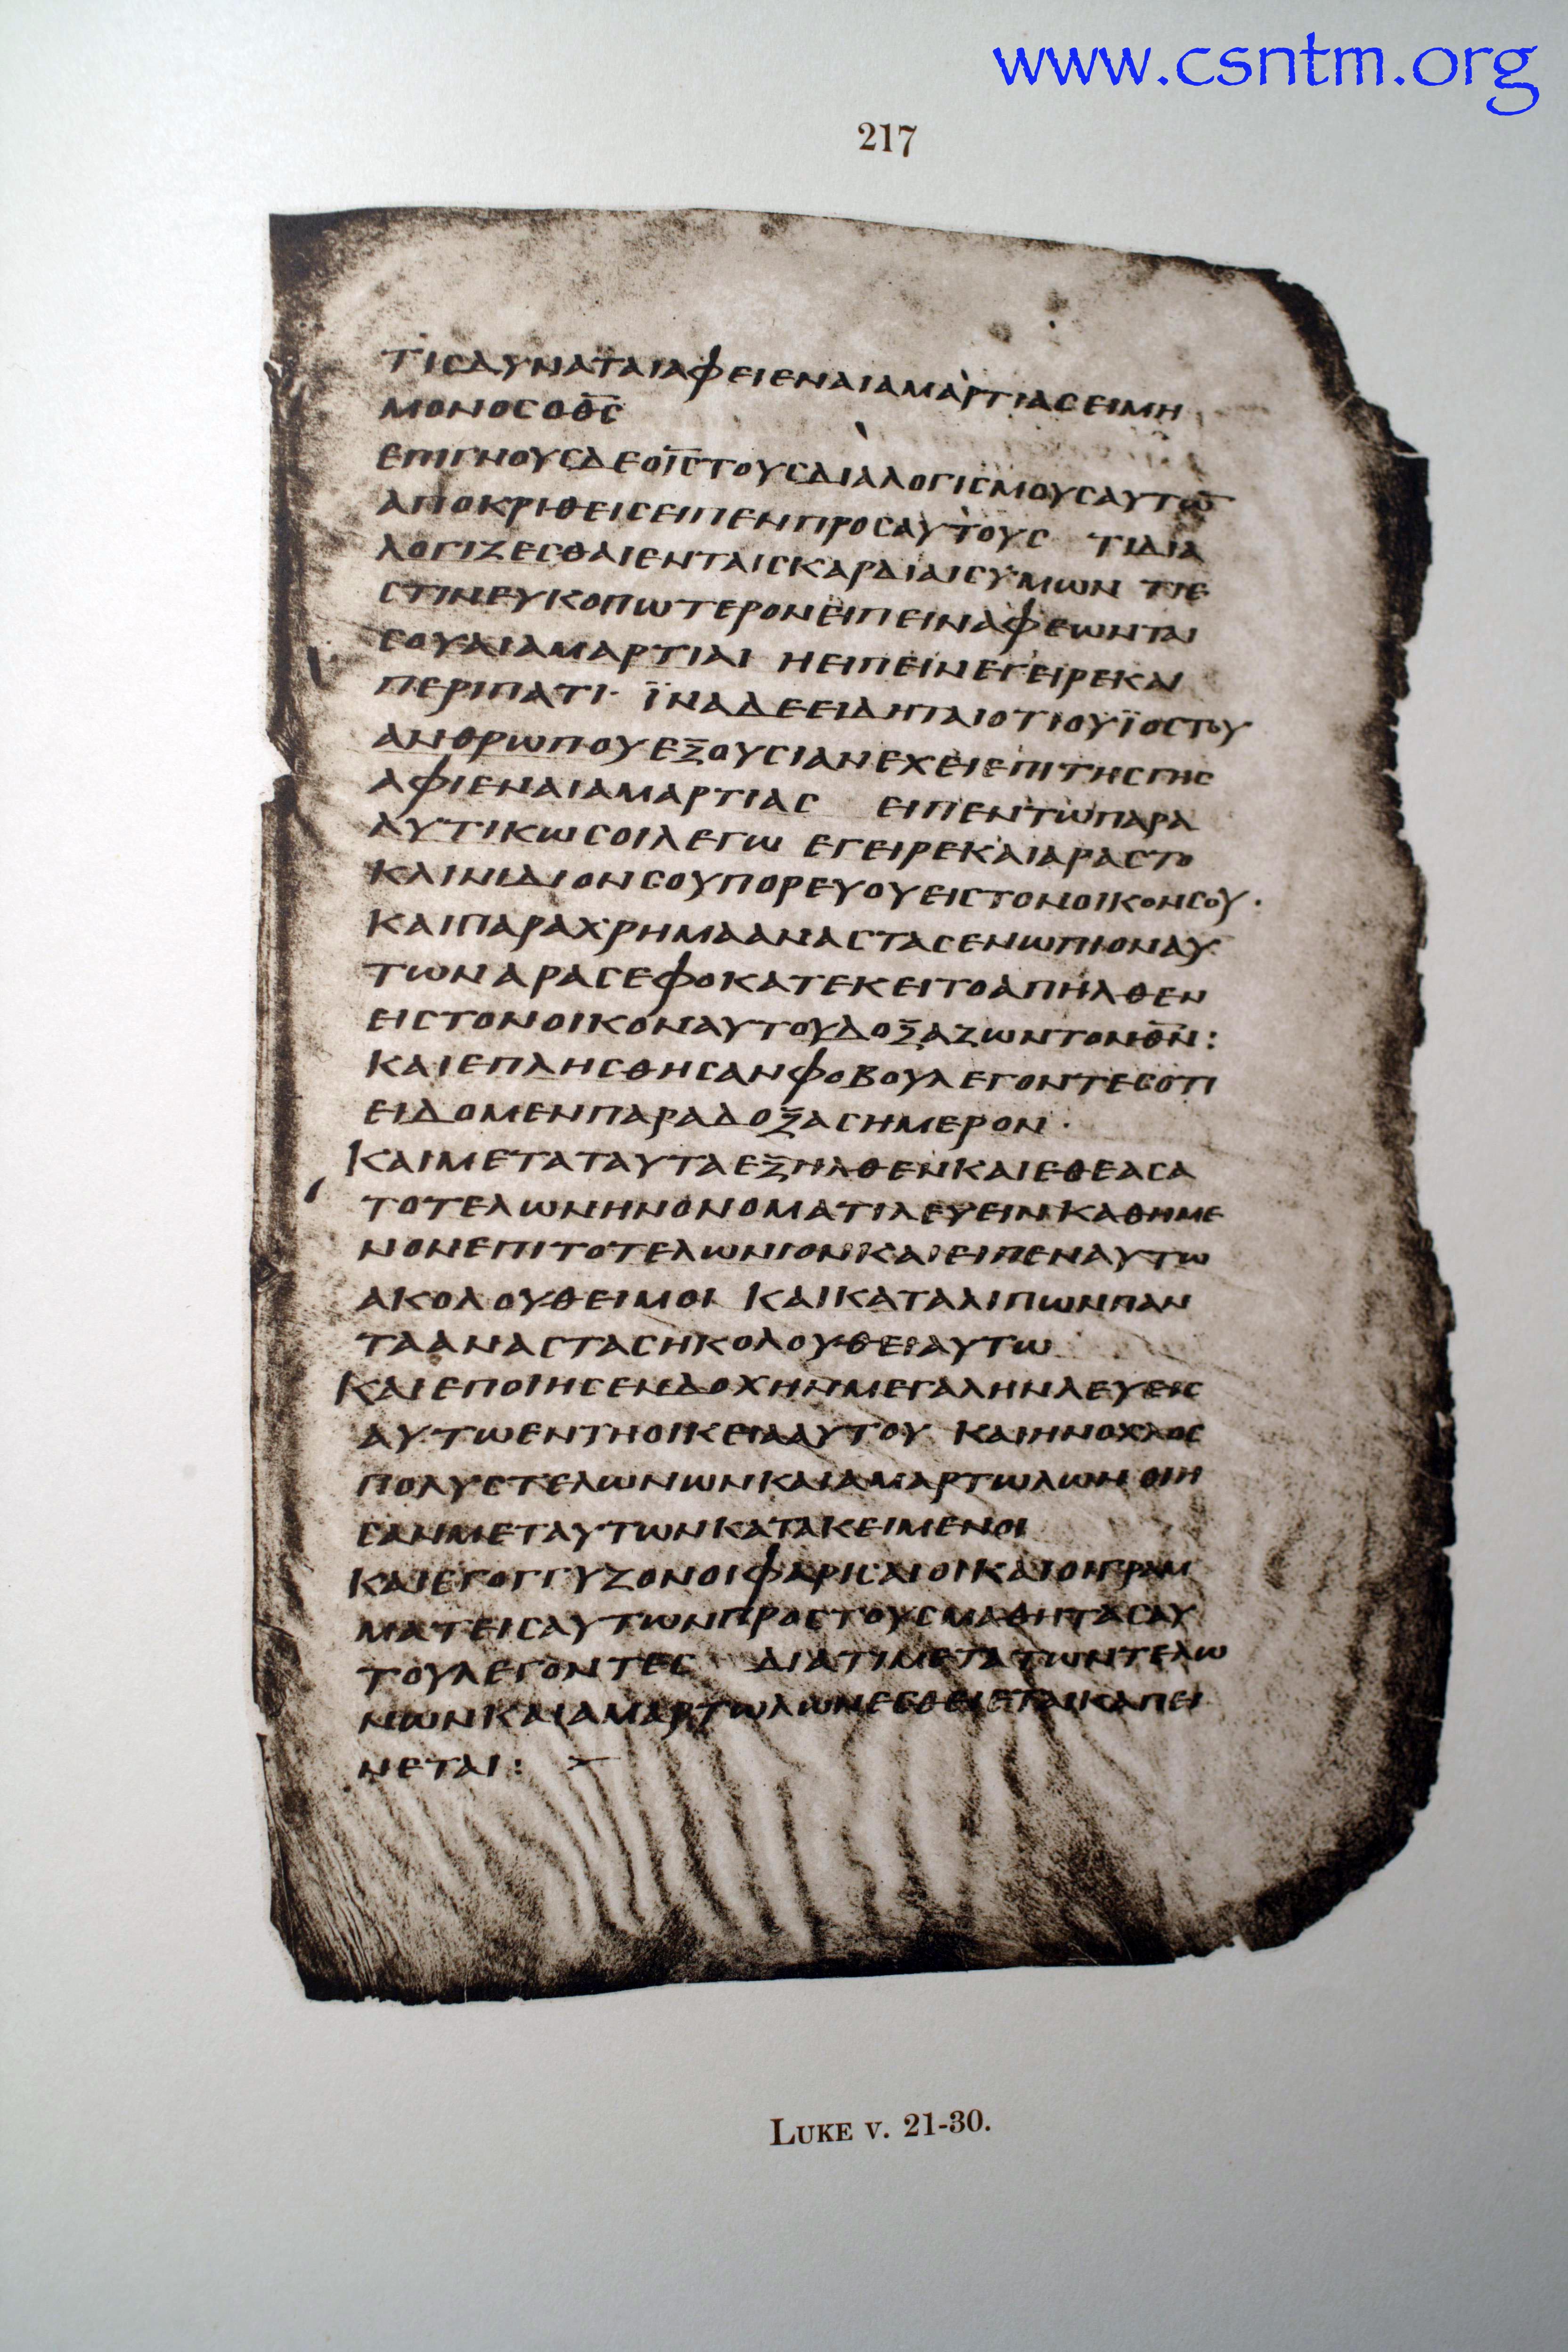 www.csntm.org
217
ΤΙCΔΥΝΑΤΑΙΑΦΕΙΕΝΑΙΑΜΑΡΤΙΑCΕΙΜΗ
ΜΟΝΟCΟΘ̅C̅
ΕΠΙΓΝΟΥCΔΕΟΙ̅C̅ΤΟΥCΔΙΑΛΟΓΙCΜΟΥCΑΥΤΩ̅
ΑΠΟΚΡΙΘΕΙCΕΙΠΕΝΠΡΟCΑΥΤΟΥC ΤΙΔΙΑ
ΛΟΓΙΖΕCΘΑΙΕΝΤΑΙCΚΑΡΔΙΑΙCΥΜΩΝ ΤΙΕ
CΤΙΝΕΥΚΟΠΩΤΕΡΟΝΕΙΠΕΙΝΑΦΕΩΝΤΑΙ
CΟΥΑΙΑΜΑΡΤΙΑΙ ΗΕΙΠΕΙΝΕΓΕΙΡΕΚΑΙ
ΠΕΡΙΠΑΤΙ· ΪΝΑΔΕΕΙΔΗΤΑΙΟΤΙΟΥΪΟCΤΟΥ
ΑΝΘΡΩΠΟΥΕΞΟΥCΙΑΝΕΧΕΙΕΠΙΤΗCΓΗC
ΑΦΙΕΝΑΙΑΜΑΡΤΙΑC ΕΙΠΕΝΤΩΠΑΡΑ
ΛΥΤΙΚΩCΟΙΛΕΓΩ ΕΓΕΙΡΕΚΑΙΑΡΑCΤΟ
ΚΛΙΝΙΔΙΟΝCΟΥΠΟΡΕΥΟΥΕΙCΤΟΝΟΙΚΟΝCΟΥ·
ΚΑΙΠΑΡΑΧΡΗΜΑΑΝΑCΤΑCΕΝΩΠΙΟΝΑΥ
ΤΩΝΑΡΑCΕΦΟΚΑΤΕΚΕΙΤΟΑΠΗΛΘΕΝ
ΕΙCΤΟΝΟΙΚΟΝΑΥΤΟΥΔΟΞΑΖΩΝΤΟΝΘ̅Ν̅:
ΚΑΙΕΠΛΗCΘΗCΑΝΦΟΒΟΥΛΕΓΟΝΤΕCΟΤΙ
ΕΙΔΟΜΕΝΠΑΡΑΔΟΞΑCΗΜΕΡΟΝ·
ΚΑΙΜΕΤΑΤΑΥΤΑΕΞΗΛΘΕΝΚΑΙΕΘΕΑCΑ
ΤΟΤΕΛΩΝΗΝΟΝΟΜΑΤΙΛΕΥΕΙΝΚΑΘΗΜΕ
ΝΟΝΕΠΙΤΟΤΕΛΩΝΙΟΝΚΑΙΕΙΠΕΝΑΥΤΩ
ΑΚΟΛΟΥΘΕΙΜΟΙ ΚΑΙΚΑΤΑΛΙΠΩΝΠΑΝ
ΤΑΑΝΑCΤΑCΗΚΟΛΟΥΘΕΙΑΥΤΩ
ΚΑΙΕΠΟΙΗCΕΝΔΟΧΗΝΜΕΓΑΛΗΝΛΕΥΕΙC
ΑΥΤΩΕΝΤΗΟΙΚΕΙΑΑΥΤΟΥ ΚΑΙΗΝΟΧΛΟC
ΠΟΛΥCΤΕΛΩΝΩΝΚΑΙΑΜΑΡΤΩΛΩΝ ΟΙΗ
CΑΝΜΕΤΑΥΤΩΝΚΑΤΑΚΕΙΜΕΝΟΙ
ΚΑΙΕΓΟΓΓΥΖΟΝΟΙΦΑΡΙCΑΙΟΙΚΑΙΟΙΓΡΑΜ
ΜΑΤΕΙCΑΥΤΩΝΠΡΟCΤΟΥCΜΑΘΗΤΑCΑΥ
ΤΟΥΛΕΓΟΝΤΕC ΔΙΑΤΙΜΕΤΑΤΩΝΤΕΛΩ
ΝΩΝΚΑΙΑΜΑΡΤΩΛΩΝΕCΘΕΙΕΤΑΙΚΑΙΠΕΙ
ΝΕΤΑΙ:
LUKE V. 21-30.